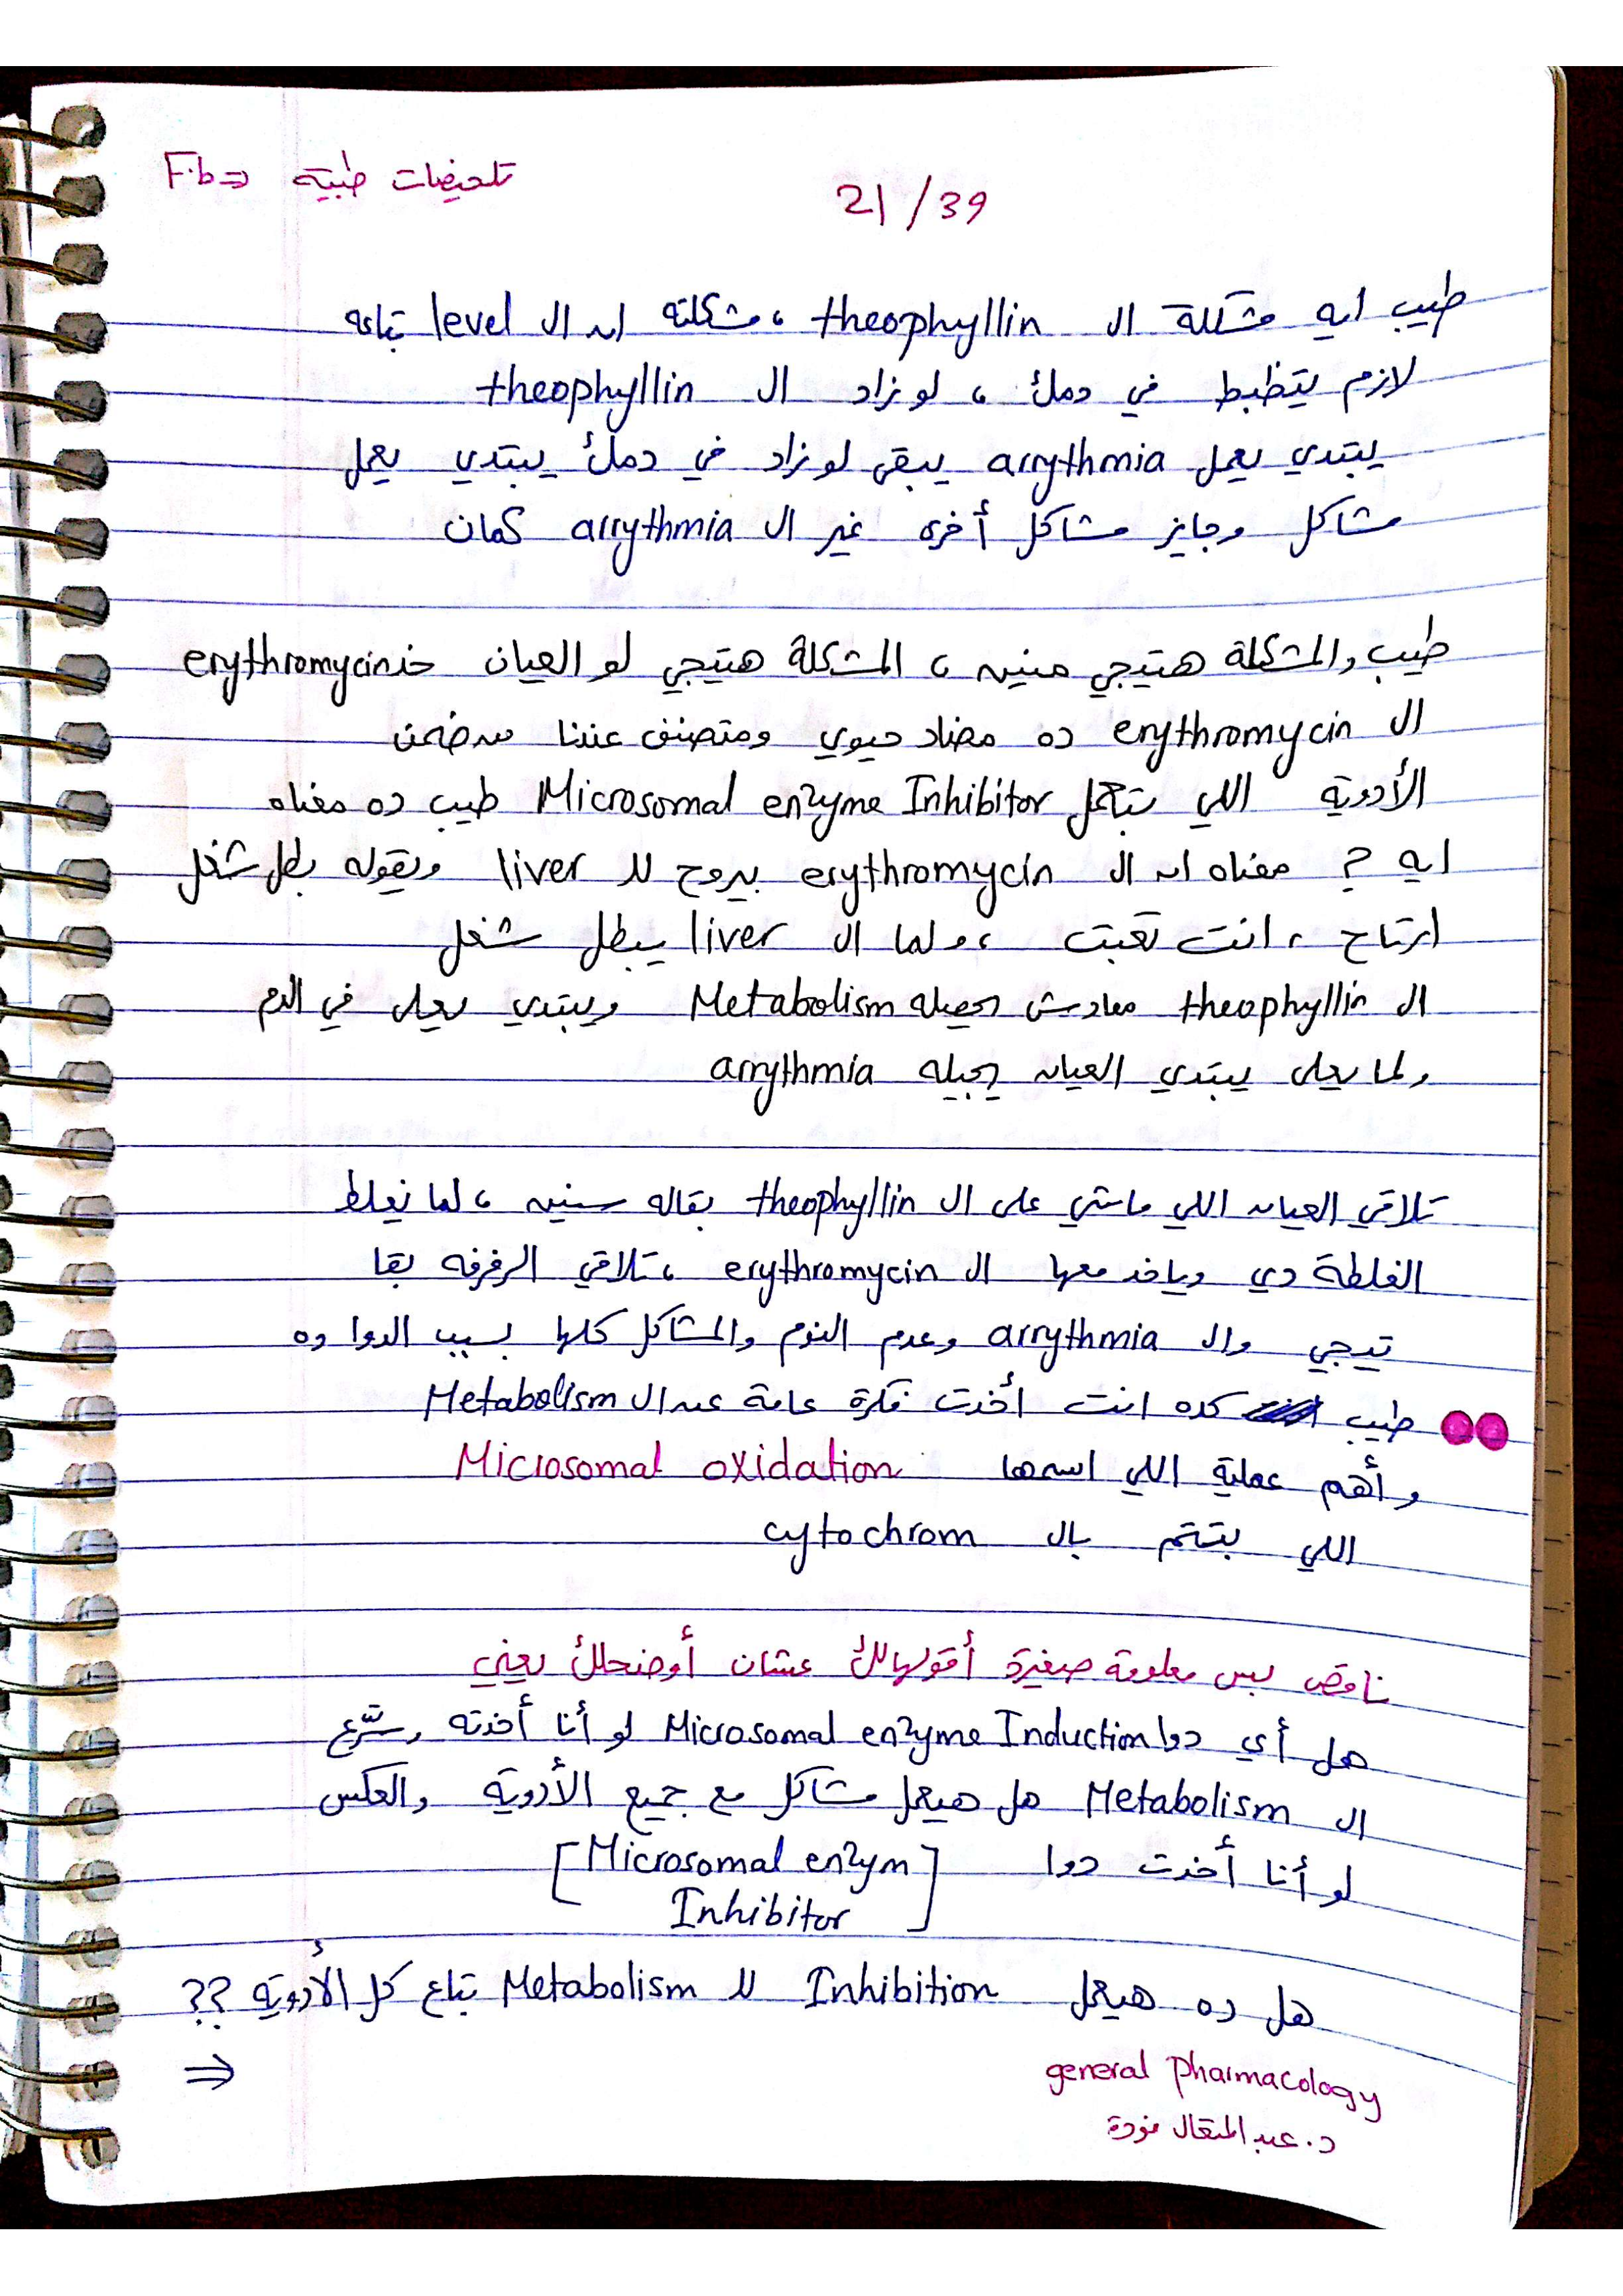 F.b⇒ تلخيصات طبية
21/39
طيب ايه مشكلة ال theophyllin ، مشكلته ان ال level بتاعه
لازم يتظبط في دمك ، لو زاد ال theophyllin
يبتدي يعمل arrythmia يبقى لو زاد في دمك يبتدي يعمل
مشاكل وجايز مشاكل أخرى غير ال arrythmia كمان
طيب والمشكلة هتيجي منين ، المشكلة هتيجي لو العيان خد erythromycin
ال erythromycin ده مضاد حيوي ومتصنف عندنا من ضمن
الأدوية اللي بتعمل Microsomal enzyme Inhibitor طيب ده معناه
ايه ? معناه ان ال erythromycin بيروح لل liver ويقوله بطل شغل
ارتاح ، انت تعبت ، ولما ال liver يبطل شغل
ال theophyllin معادش يحصله Metabolism ويبتدي يعلى في الدم
ولما يعلى يبتدي العيان يجيله arrythmia
تلاقي العيان اللي ماشي على ال theophyllin بقاله سنين ، لما نغلط
الغلطة دي وياخد معها ال erythromycin ، تلاقي الرفرفه بقا
تيجي وال arrythmia وعدم النوم والمشاكل كلها بسبب الدوا ده
طيب كده انت أخدت فكرة عامة عن ال Metabolism
وأهم عملية اللي اسمها Microsomal oxidation
اللي بتتم بال cytochrom
ناقص بس معلومة صغيرة أقولهالك عشان أوضحلك يعني
هل أي دوا Microsomal enzyme Induction لو أنا أخدته وسرّع
ال Metabolism هل هيعمل مشاكل مع جميع الأدوية والعكس
لو أنا أخدت دوا [Microsomal enzym
Inhibitor]
هل ده هيعمل Inhibition لل Metabolism بتاع كل الأدوية ??
⇒
general pharmacology
د. عبد المتعال فودة